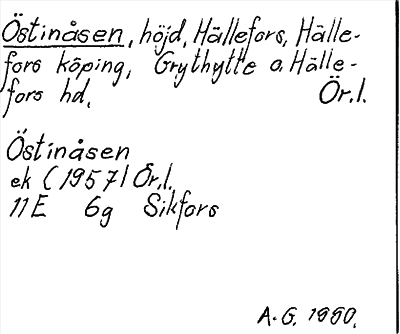 Östinåsen, höjd, Hällefors, Hälle-
fors köping, Grythytte o. Hälle-
fors hd. Ör.l.
Östinåsen
ek (1957) Ör.l.
11E 6g Sikfors
A.G. 1990.